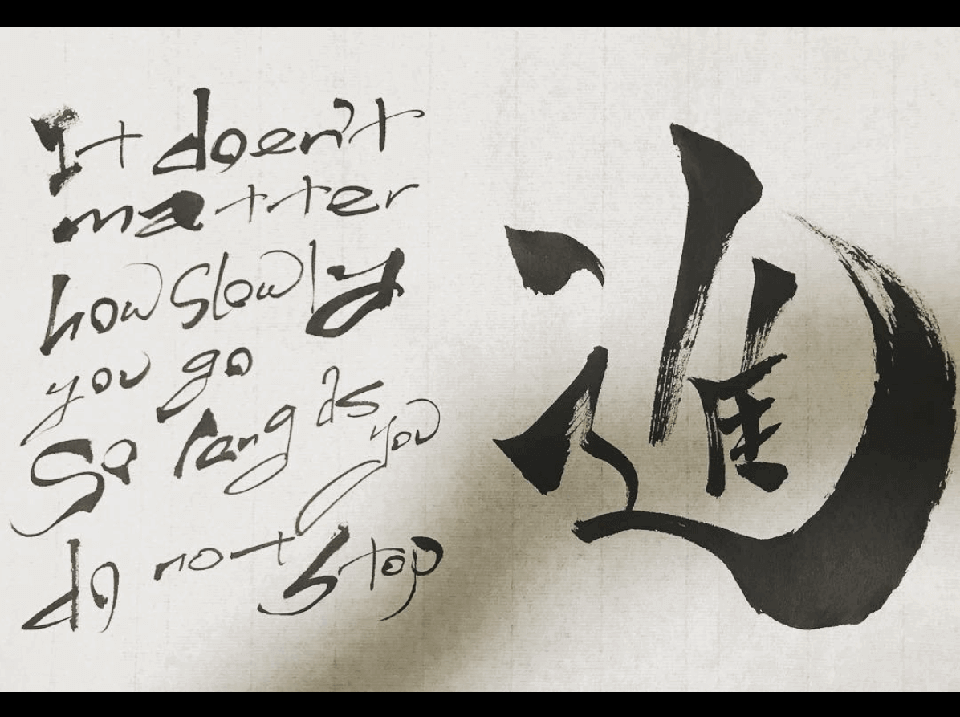 It doen't
matter
how slowly
you go
So long as
you
do not stop
進